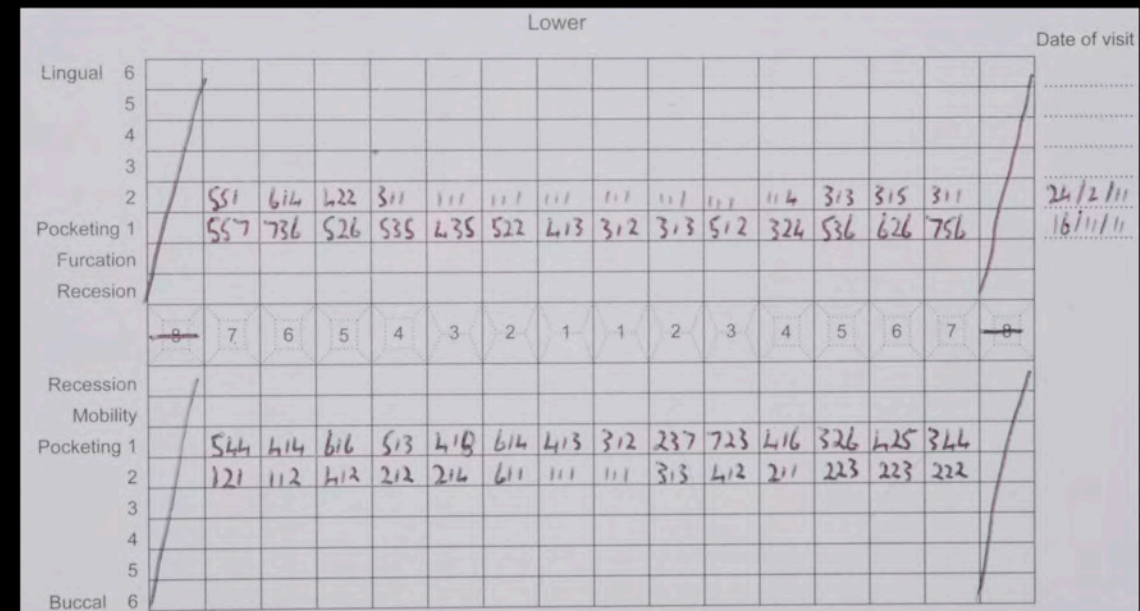 Lower
Date of visit
Lingual 6
5
4
3
2 551 614 422 311 111 111 111 111 111 111 114 313 315 311 24/2/11
Pocketing 1 557 736 526 535 435 522 413 312 313 512 324 536 626 756 16/11/11
Furcation
Recesion
8 7 6 5 4 3 2 1 1 2 3 4 5 6 7 8
Recession
Mobility
Pocketing 1 544 414 616 513 614 413 312 237 723 416 326 425 344
2 121 112 412 212 214 611 111 111 313 412 211 223 223 222
3
4
5
Buccal 6